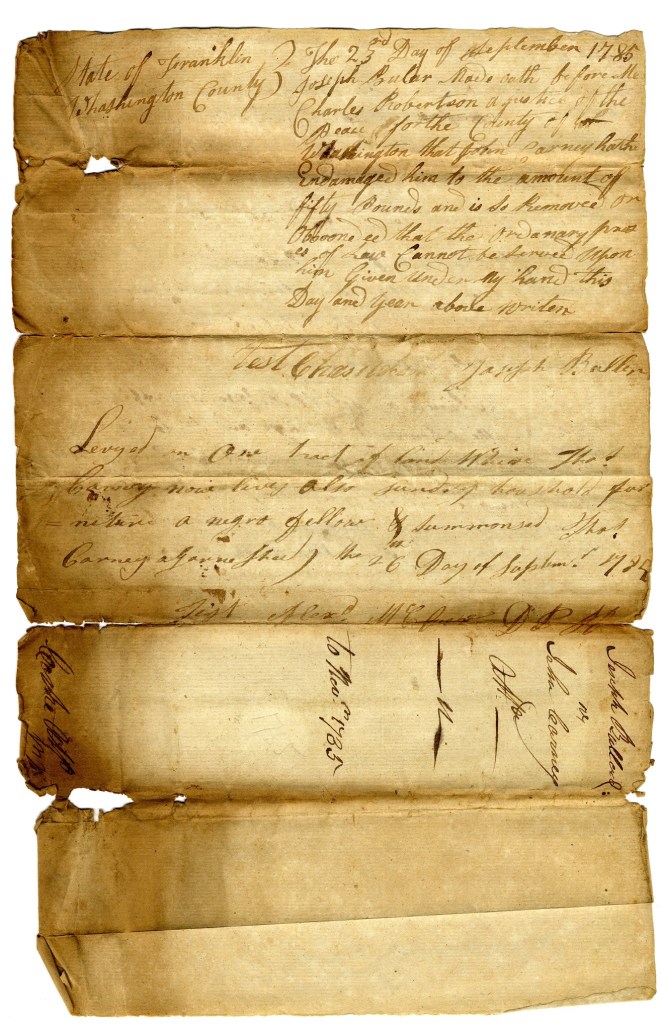 State of Franklin )
Washington County )
The 23rd Day of September 1785
Joseph Bular Made oath before Me
Charles Robertson a Justice of the
Peace for the County of
Washington that John Carney hath
Endamaged him to the amount of
fifty Pounds and is So Removed or
that the ordanary proc
es of Law Cannot be Served Upon
him Given under My hand this
Day and year above writen
Test Joseph Bullen
Levyed on One tract of land Whare Thos
Carney now lives also sundery houshold fur
= niture a negro fellow & summonsed Thos
Carney a Garneshee) the 26th Day of Septmr 178
Test Alexd
Joseph Bullerd
vs
John Carney
to Novr 1785